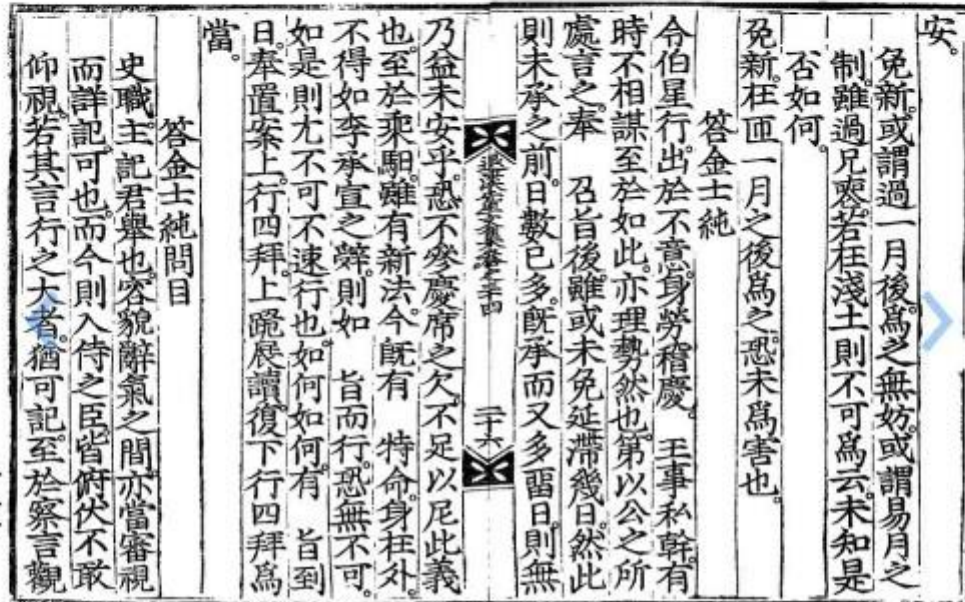 安。
免新。或謂過一月後。爲之無妨。或謂易月之
制。雖過兄喪。若在淺土則不可爲云。未知是
否如何。
免新。在匝一月之後爲之。恐未爲害也。
答金士純
令伯星行。出於不意。身勞稽慶。王事私幹。有
時不相謀至於如此。亦理勢然也。第以公之所
處言之。奉 召旨後。雖或未免延滯幾日。然此
則未承之前。日數已多。旣承而又多畱日。則無
退溪先生文集卷之三十四 二十六
乃益未安乎。恐不參慶席之欠。不足以尼此義
也。至於乘馹。雖有新法。今旣有 特命。身在外。
不得如李承宣之辭。則如 旨而行。恐無不可
如是則尤不可不速行也。如何如何。有 旨到
日。奉置案上。行四拜。上跪展讀。復下行四拜爲
當。
答金士純問目
史職。主記君擧也。容貌辭氣之間。亦當審視
而詳記。可也。而今則入侍之臣。皆俯伏不敢
仰視。若其言行之大者。猶可記。至於察言觀